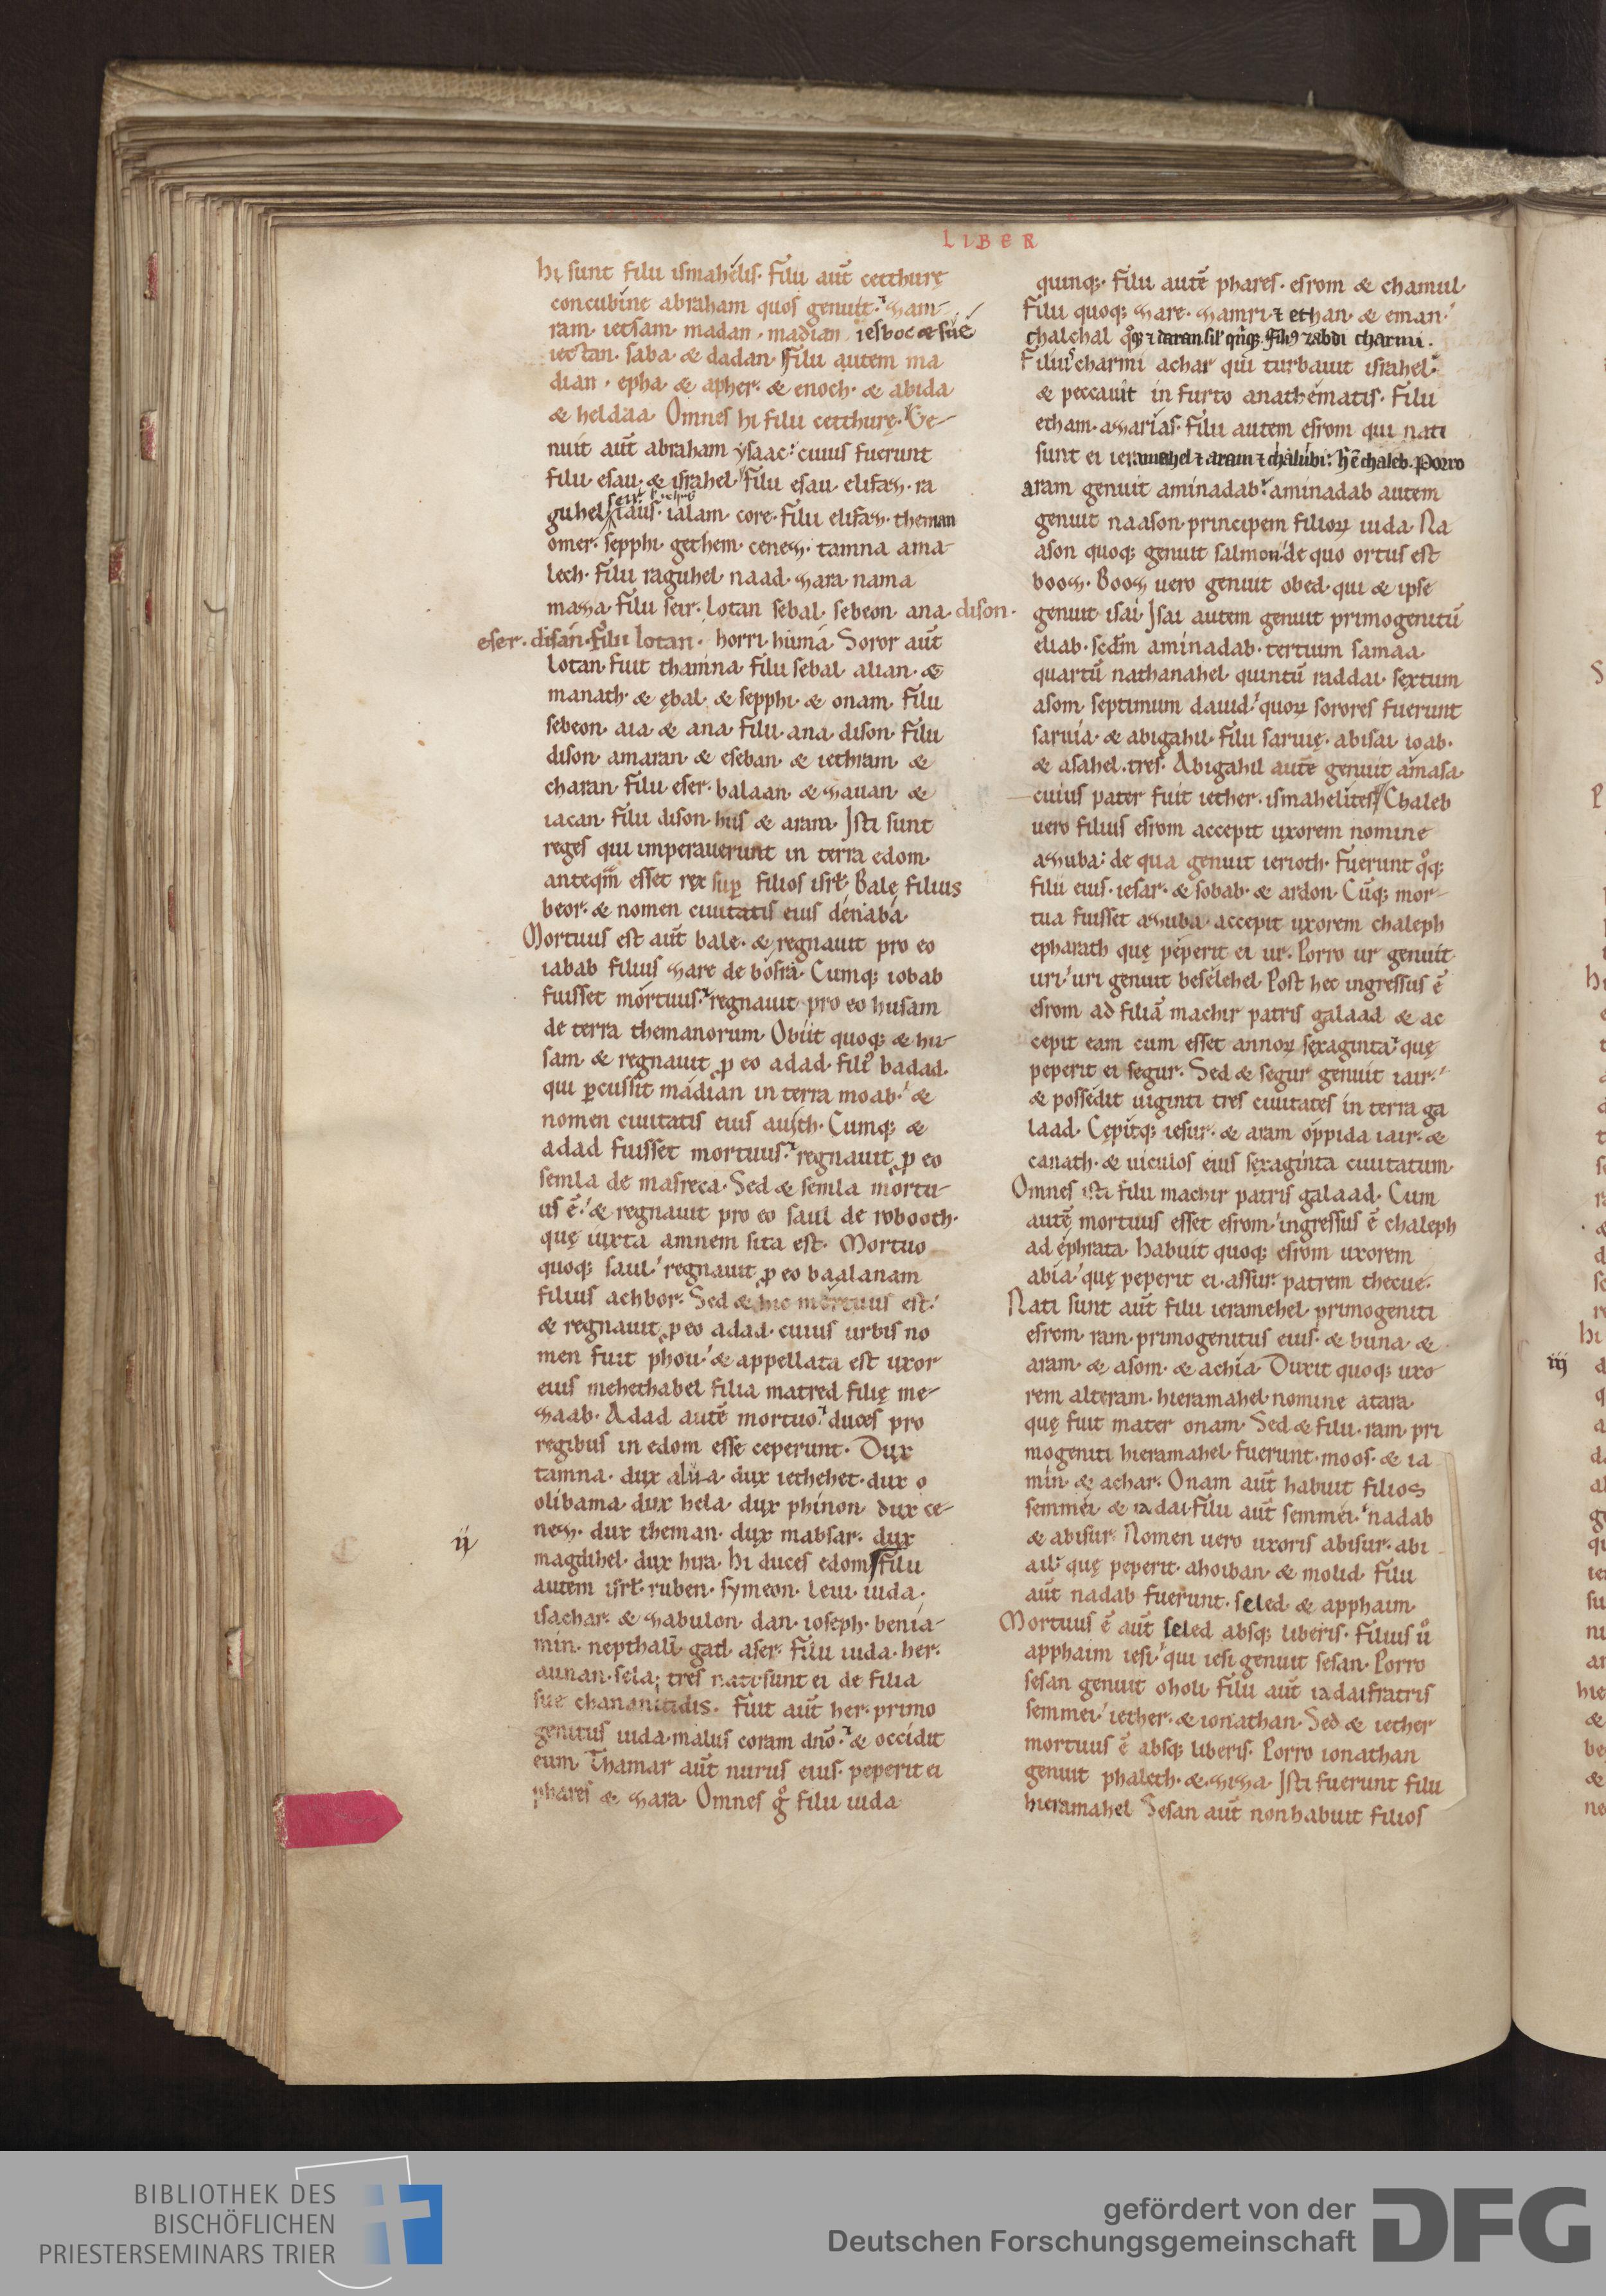 LIBER
hi sunt filii ismahelis. filii aut̄ cetthurę
concubine abraham quos genuit. zam-
ram. iecsam. madan. madian iesboc & sue
iectan. saba. & dadan. filii autem ma
dian. epha. & apher. & enoch. & abida
& heldaa. Omnes hi filii cetthurę. Ge-
nuit aut̄ abraham ysaac: cuius fuerunt
filii esau. & israhel. filii esau. elifaz. ra
guhel. iaus. ialam. core. filii elifaz. theman
omer. sepphi. gethem. cenez. tamna ama-
lech. filii raguhel. naad. zara. nama
maza. filii seir. lotan sebal. sebeon. ana. dison.
eser. disan. filii lotan. horri. huma. Soror aut̄
lotan fuit thamna. filii sebal. alian. &
manath. & ębal. & sepphi. & onam. filii
sebeon. aia. & ana. filii. ana. dison. filii
dison. amaran. & eseban. & iethram. &
charan. filii eser. balaan. & zauan. &
iacan. filii dison. hus & aram. Isti sunt
reges qui imperauerunt in terra edom.
anteq̄m esset rex sup filios isrł. Bale filius
beor. & nomen ciuitatis eius denaba.
Mortuus est aut̄ bale. & regnauit pro eo
iabab filius zare de bosra. Cumq; iobab
fuisset mortuus. regnauit pro eo husam
de terra themanorum. Obiit quoq; & hu-
sam. & regnauit p eo adad. fili' badad.
qui pcussit madian in terra moab. &
nomen ciuitatis eius auith. Cumq; &
adad fuisset mortuus. regnauit p eo
semla de masreca. Sed & semla mortu-
us ē. & regnauit pro eo saul de robooth.
quę iuxta amnem sita est. Mortuo
quoq; saul regnauit p eo baalanam
filius achbor. Sed & hic mortuus est.
& regnauit p eo adad. cuius urbis no
men fuit phou. & appellata est uxor
eius mehethabel filia matred filię me-
zaab. Adad autē mortuo. duces pro
regibus in edom esse ceperunt. Dux
tamna. dux alua. dux iethehet. dux o
olibama. dux hela. dux phinon dux ce-
nez. dux theman. dux mabsar. dux
ij
magdihel. dux hira. hi duces edom filii
autem isrł. ruben. symeon. leui. iuda.
isachar. & zabulon. dan. ioseph. benia-
min. nepthali. gad. aser. filii iuda. her.
aunan. sela. tres nati sunt ei de filia
sue chananitidis. Fuit aut̄ her. primo
genitus iuda. malus coram dnō. & occidit
eum. Thamar aut̄ nurus eius. peperit ei
phares & zara. Omnes g° filii iuda
quinq;. filii autē phares. esrom & chamul.
Filii quoq; zare. zamri & ethan. & eman.
chalchal q°q; & daran. sil' qnq;. Fili9 zabdi charmi.
Filiis charmi achar qui turbauit israhel.
& peccauit in furto anathematis. Filii
etham. azarias. filii autem esrom qui nati
sunt ei ieramahel & aram & chalubi. h ē chaleb. Porro
aram genuit aminadab. aminadab autem
genuit naason principem filioꝝ iuda. Na
ason quoq; genuit salmon de quo ortus est
booz. Booz uero genuit obed. qui & ipse
genuit isai. Isai autem genuit primogenitū
eliab. scdm aminadab. tertium samaa.
quartū nathanahel. quintū raddai. sextum
asom. septimum dauid. quoꝝ sorores fuerunt
saruia. & abigahil. filii saruię. abisai. ioab.
& asahel. tres. Abigahil autē genuit amasa.
cuius pater fuit iether. ismahelites. Chaleb
uero filius esrom accepit uxorem nomine
azuba: de qua genuit ierioth. fuerunt q°q;
filii eius. iesar. & sobab. & ardon. Cūq; mor-
tua fuisset azuba. accepit uxorem chaleph
epharath quę peperit ei ur. Porro ur genuit
uri. uri genuit beselehel. Post hec ingressus ē
esrom ad filiā machir patris galaad. & ac
cepit eam cum esset annoꝝ sexaginta. quę
peperit ei segur. Sed & segur genuit iair.
& possedit uiginti tres ciuitates in terra ga
laad. Cepitq; iesur. & aram oppida iair. &
canath. & uiculos eius sexaginta ciuitatum.
Omnes isti filii machir patris galaad. Cum
autē mortuus esset esrom. ingressus ē chaleph
ad ephrata. habuit quoq; esrom uxorem
abia. quę peperit ei assur. patrem thecue.
Nati sunt aut̄ filii ieramehel primogeniti
esrom. ram. primogenitus eius. & buna. &
aram. & asom. & achia. Duxit quoq; uxo
rem alteram. hieramahel. nomine atara.
quę fuit mater onam. Sed & filii. ram. pri
mogeniti hieramahel. fuerunt. moos. & ia
min. & achar. Onam aut̄ habuit filios
semmei & iadai. filii aut̄ semmei. nadab
& abisur. Nomen uero uxoris abisur. abi
ail. quę peperit. ahoiban. & molid. Filii
aut̄ nadab fuerunt. seled. & apphaim.
Mortuus ē aut̄ seled absq; liberis. Filius ů
apphaim iesi. qui iesi genuit sesan. Porro
sesan genuit oholi. Filii aut̄ iadai fratris
semmei. iether. & ionathan. Sed & iether
mortuus ē absq; liberis. Porro ionathan
genuit phaleth. & ziza. Isti fuerunt filii
hieramahel. Sesan aut̄ non habuit filios
iij
BIBLIOTHEK DES
BISCHÖFLICHEN
PRIESTERSEMINARS TRIER
gefördert von der
Deutschen Forschungsgemeinschaft
DFG